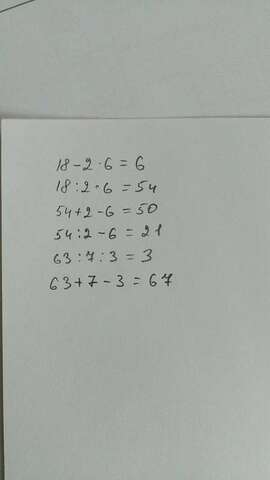 18 - 2 · 6 = 6
18 : 2 · 6 = 54
54 + 2 - 6 = 50
54 : 2 - 6 = 21
63 : 7 : 3 = 3
63 + 7 - 3 = 67